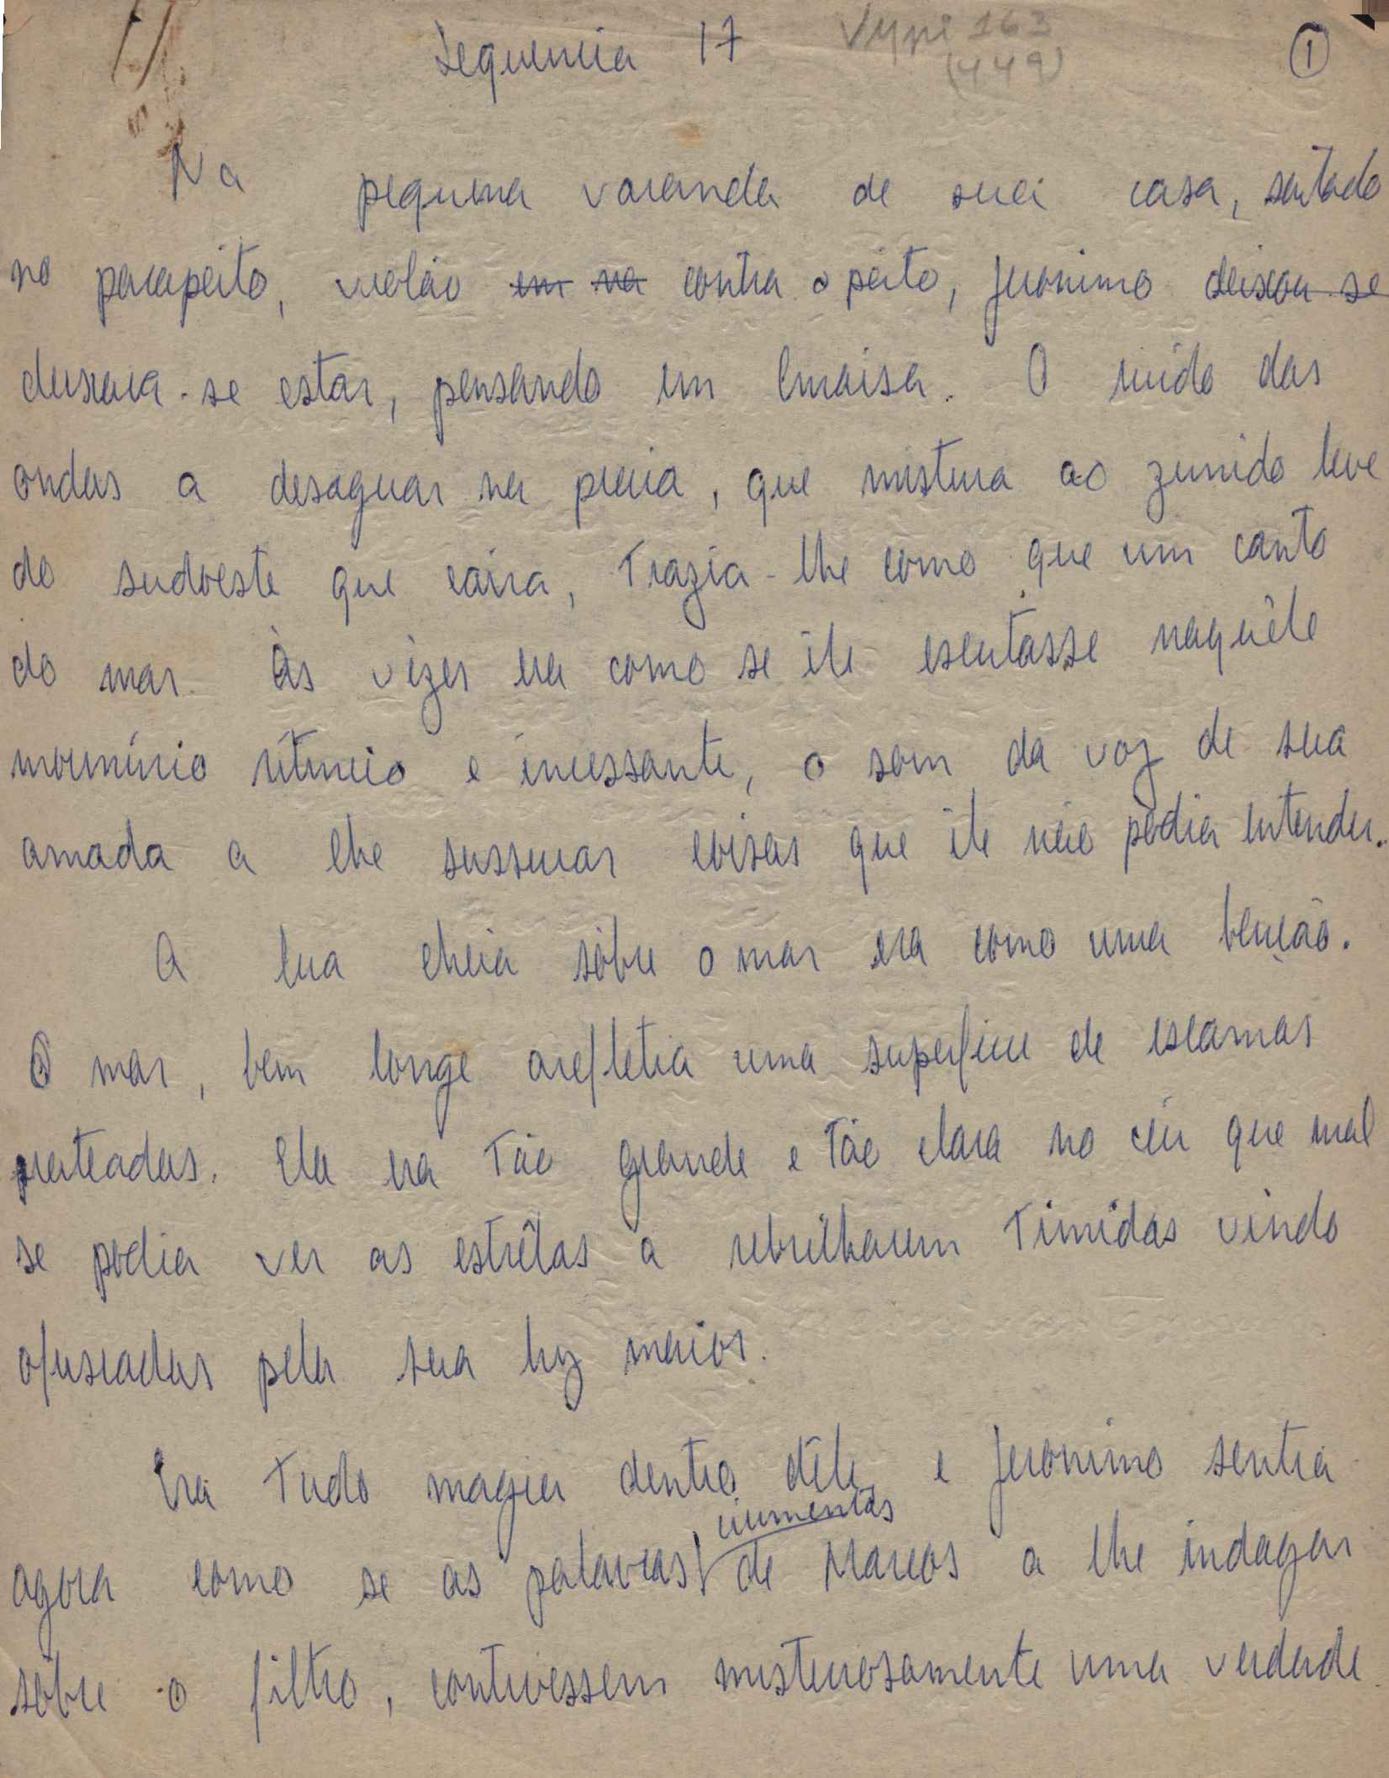 Sequencia 17 Vype 163 ①
(449)
Na pequena varanda de sua casa, sentado
no parapeito, violão em na contra o peito, Jeronimo deixou se
deixava-se estar, pensando em Lucaisa. O ruido das
ondas a desaguar na praia, que mistura ao zunido leve
do sudoeste que caira, trazia-lhe como que um canto
do mar. Às vêzes era como se êle escutasse naquêle
mormúrio rítmico e incessante, o som da voz de sua
amada a lhe sussurar coisas que êle não podia entender.
A lua cheia sôbre o mar era como uma benção.
O mar, bem longe arefletia uma superficie de escamas
prateadas. Ela era tão grande e tão clara no céu que mal
se podia ver as estrêlas a rebrilharem timidas vindo
ofuscadas pela sua luz maior.
Era tudo magia dentro dêle, e Jeronimo sentia
ciumentas
agora como se as palavras de Marcos a lhe indagar
sôbre o filtro, contivessem misteriosamente uma verdade